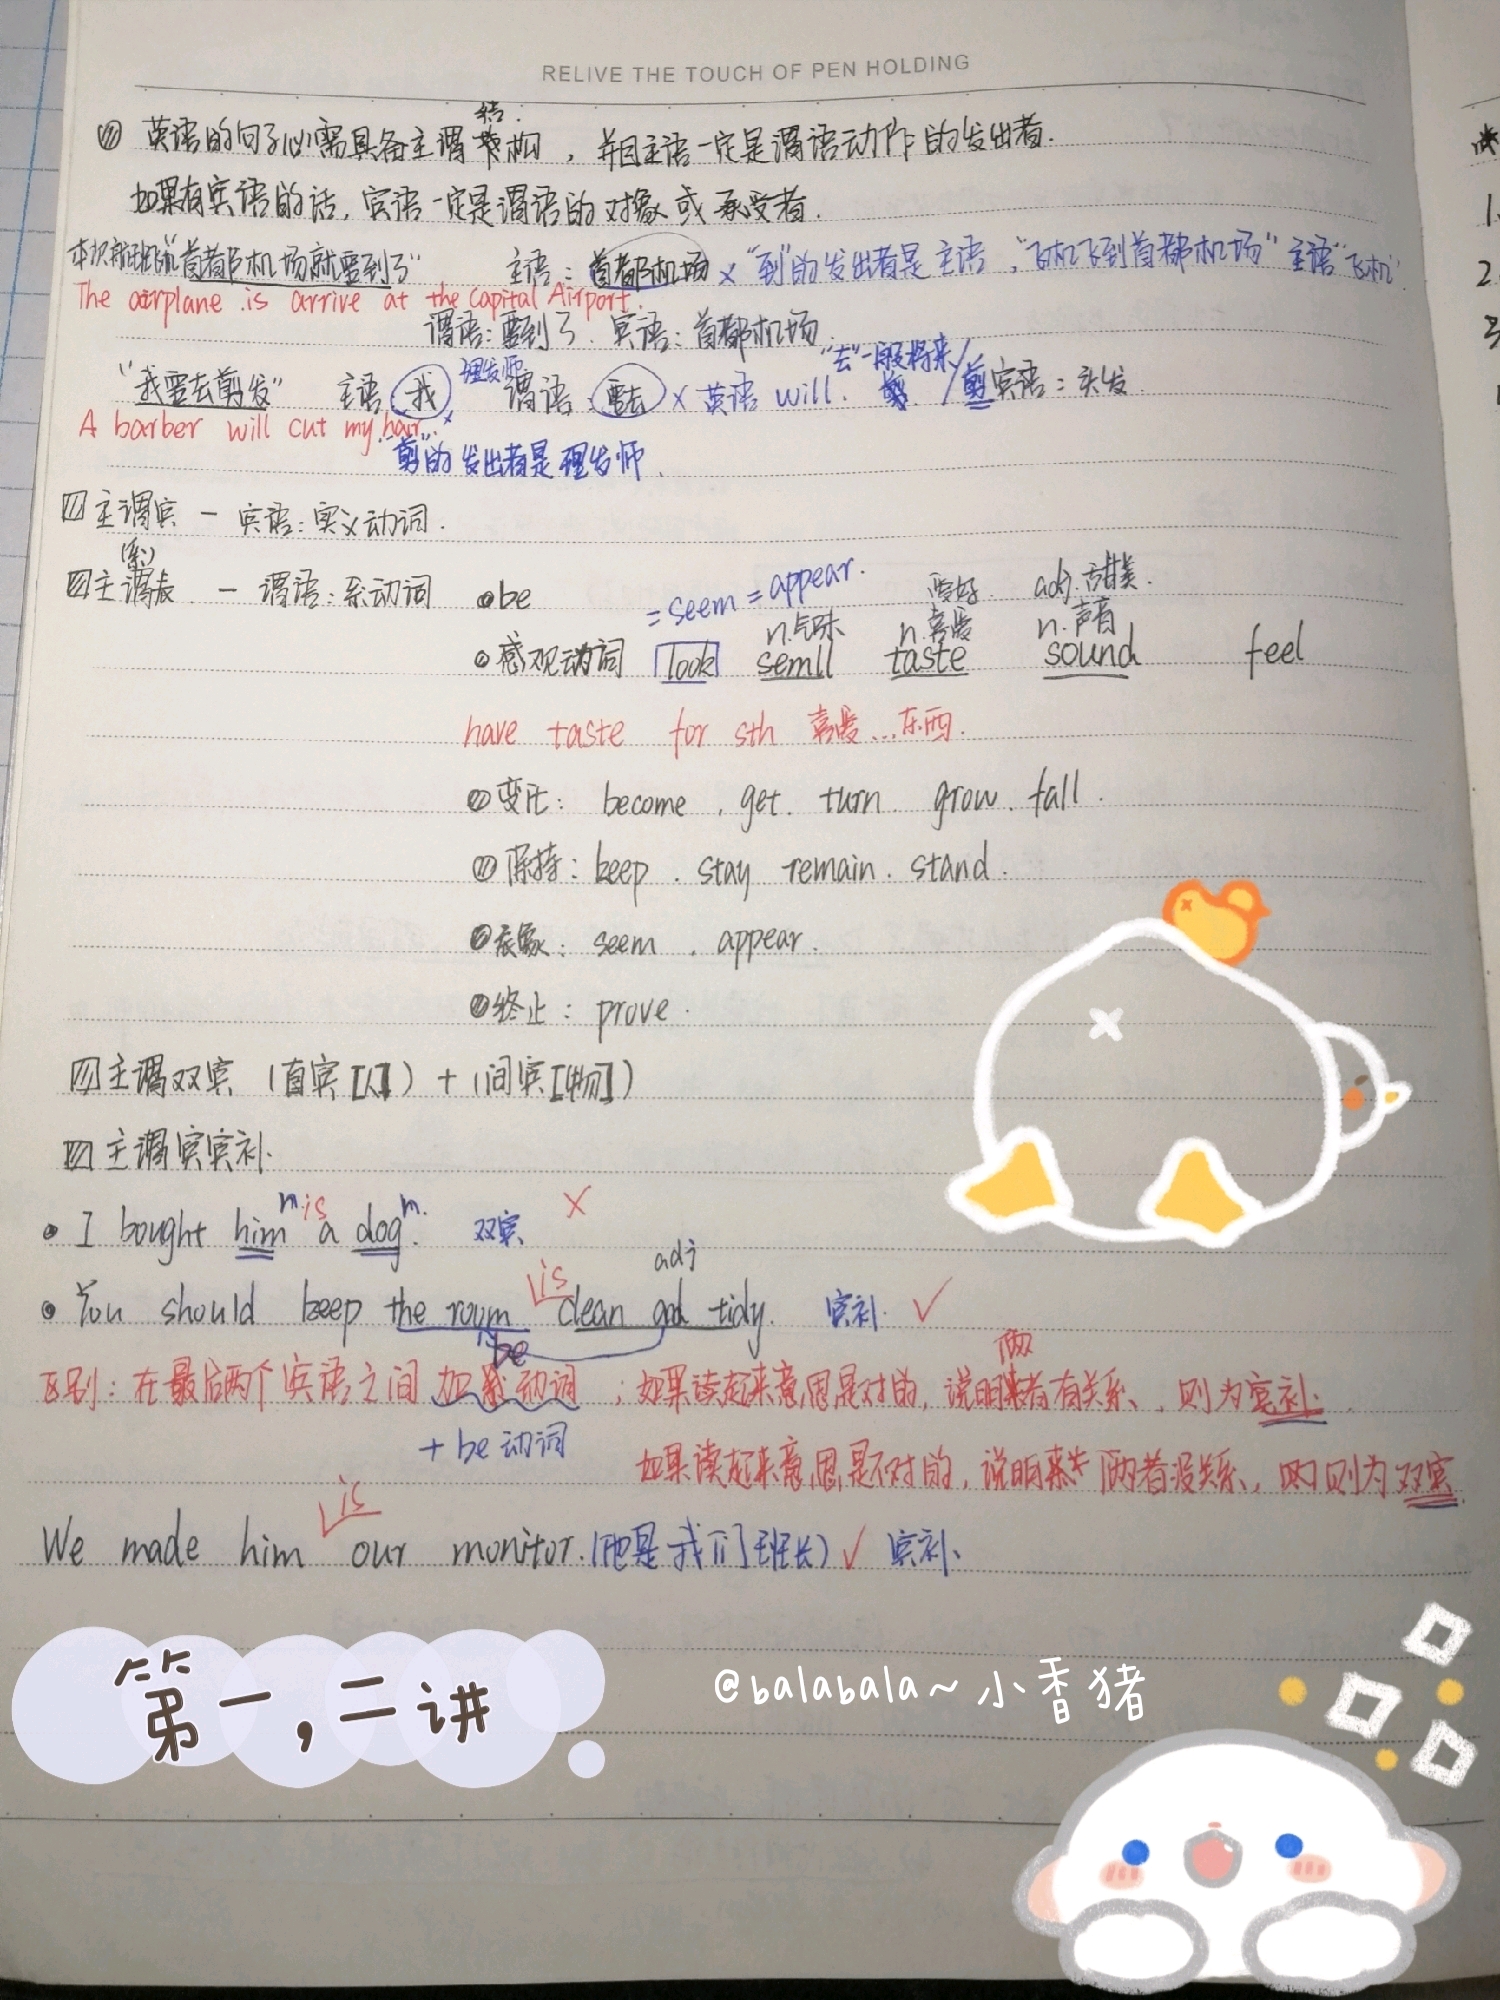 RELIVE THE TOUCH OF PEN HOLDING
英语的句子必需具备主谓结构，并且主语一定是谓语动作的发出者.
如果有宾语的话，宾语一定是谓语的对象或承受者.
"首都机场就要到了" 主语：首都机场 × "到"的发出者是主语，"飞机飞到首都机场" 主语"飞机"
The airplane is arrive at the Capital Airport.
谓语：要到了. 宾语：首都机场
"去"一般将来/
理发师
"我要去剪发" 主语 我 谓语 要去 × 英语 will. /剪 宾语：头发
A barber will cut my hair.
"剪"的发出者是理发师.
主谓宾 — 宾语：实义动词.
(系)
主谓表 — 谓语：系动词 be
= seem = appear. 要好 adj.甜美.
n.气味 n.喜爱 n.声音
感观动词 look semll taste sound feel
have taste for sth 喜爱...东西.
变化：become. get. turn. grow. fall.
保持：keep. stay remain. stand.
表象：seem. appear.
终止：prove.
主谓双宾（直宾[人]）+（间宾[物]）
主谓宾宾补.
n. is n. ×
I bought him a dog. 双宾
is adj
You should keep the room clean and tidy. 宾补. ✓
be
两
区别：在最后两个宾语之间加系动词；如果读起来意思是对的，说明者有关系、，则为宾补.
+ be动词
如果读起来意思是不对的，说明两者没关系、，则为双宾
is
We made him our monitor.(他是我们班长) ✓ 宾补、
第一,二讲
@balabala~小香猪